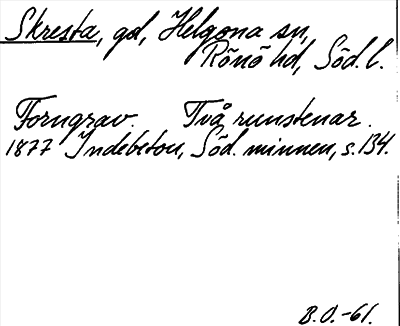 Skresta, gd, Helgona sn,
Rönö hd, Söd. l.
Forngrav. Två runstenar.
1877 Indebetou, Söd. minnen, s. 134.
B.O.-61.